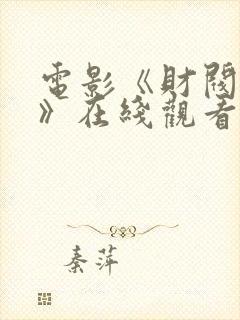 電影《財閥
》在綫觀看
秦萍